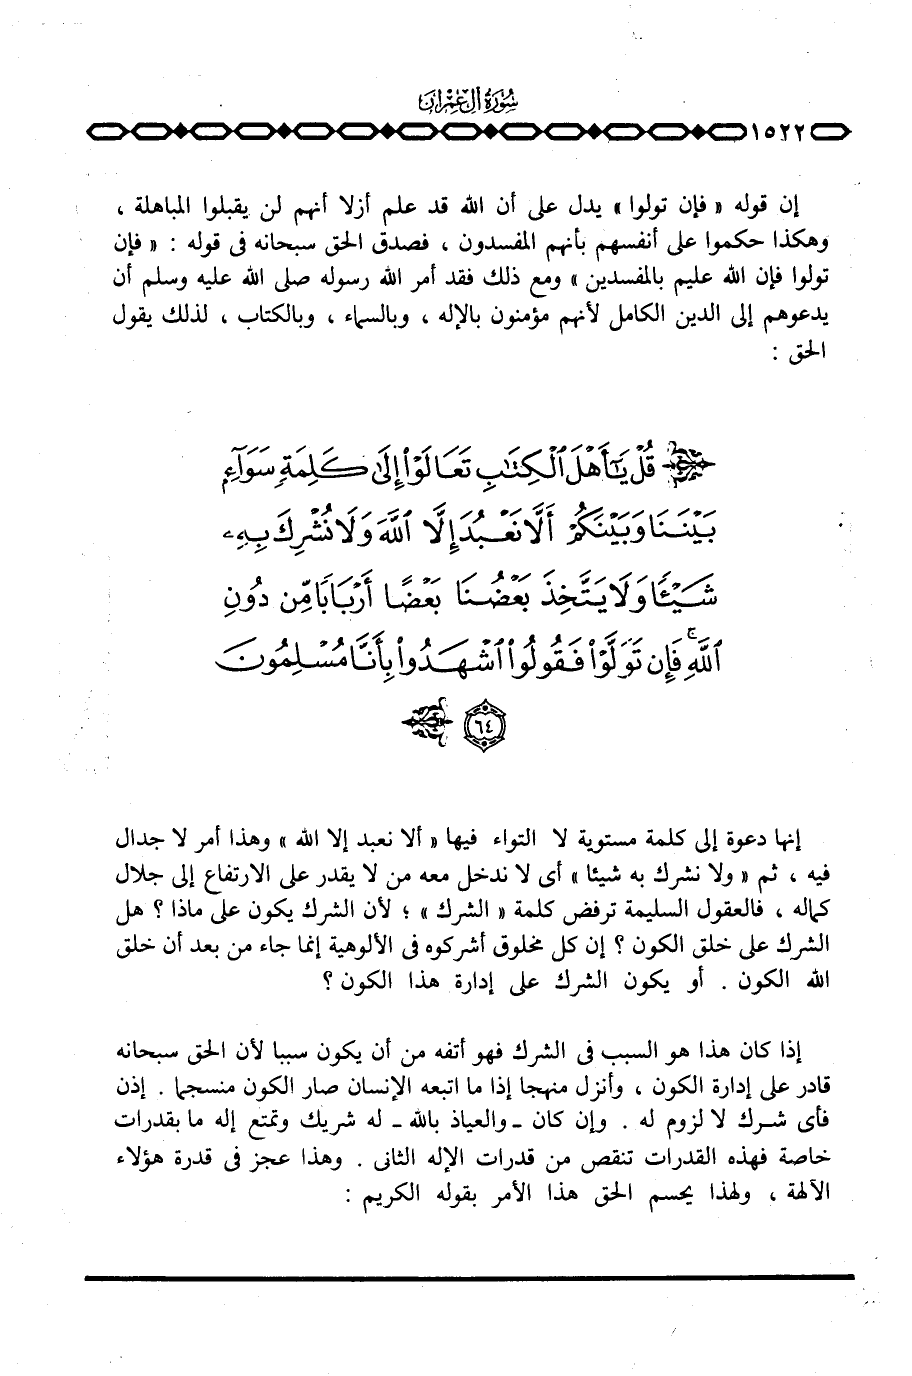 سُورَةُ آلِ عِمْرَانَ
١٥٢٢
إن قوله « فإن تولوا » يدل على أن الله قد علم أزلا أنهم لن يقبلوا المباهلة ،
وهكذا حكموا على أنفسهم بأنهم المفسدون ، فصدق الحق سبحانه فى قوله : « فإن
تولوا فإن الله عليم بالمفسدين » ومع ذلك فقد أمر الله رسوله صلى الله عليه وسلم أن
يدعوهم إلى الدين الكامل لأنهم مؤمنون بالإله ، وبالسماء ، وبالكتاب ، لذلك يقول
الحق :
قُلْ يَٰٓأَهْلَ ٱلْكِتَٰبِ تَعَالَوْا۟ إِلَىٰ كَلِمَةٍ سَوَآءٍ
بَيْنَنَا وَبَيْنَكُمْ أَلَّا نَعْبُدَ إِلَّا ٱللَّهَ وَلَا نُشْرِكَ بِهِۦ
شَيْـًٔا وَلَا يَتَّخِذَ بَعْضُنَا بَعْضًا أَرْبَابًا مِّن دُونِ
ٱللَّهِ ۚ فَإِن تَوَلَّوْا۟ فَقُولُوا۟ ٱشْهَدُوا۟ بِأَنَّا مُسْلِمُونَ
٦٤
إنها دعوة إلى كلمة مستوية لا التواء فيها « ألا نعبد إلا الله » وهذا أمر لا جدال
فيه ، ثم « ولا نشرك به شيئا » أى لا ندخل معه من لا يقدر على الارتفاع إلى جلال
كماله ، فالعقول السليمة ترفض كلمة « الشرك » ؛ لأن الشرك يكون على ماذا ؟ هل
الشرك على خلق الكون ؟ إن كل مخلوق أشركوه فى الألوهية إنما جاء من بعد أن خلق
الله الكون . أو يكون الشرك على إدارة هذا الكون ؟
إذا كان هذا هو السبب فى الشرك فهو أتفه من أن يكون سببا لأن الحق سبحانه
قادر على إدارة الكون ، وأنزل منهجا إذا ما اتبعه الإنسان صار الكون منسجما . إذن
فأى شرك لا لزوم له . وإن كان ـ والعياذ بالله ـ له شريك وتمتع إله ما بقدرات
خاصة فهذه القدرات تنقص من قدرات الإله الثانى . وهذا عجز فى قدرة هؤلاء
الآلهة ، ولهذا يحسم الحق هذا الأمر بقوله الكريم :